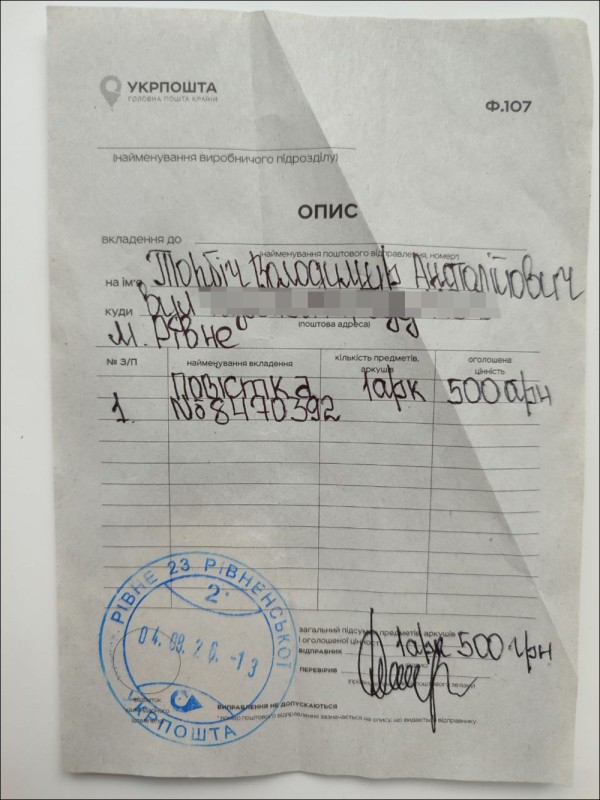 УКРПОШТА
ГОЛОВНА ПОШТА КРАЇНИ
Ф.107
(найменування виробничого підрозділу)
ОПИС
вкладення до
(найменування поштового відправлення, номер)
на ім'я Торбіч Володимир Анатолійович
куди вул
(поштова адреса)
м. Рівне
№ З/П найменування вкладення кількість предметів, аркушів оголошена цінність
1. Повістка №8470392 1арк 500грн
загальний підсумок предметів, аркушів
і оголошеної цінності 1арк 500 грн
ВІДПРАВНИК
ПЕРЕВІРИВ
ВИПРАВЛЕННЯ НЕ ДОПУСКАЮТЬСЯ
*номер поштового відправлення зазначається на описі, що видається відправнику
РІВНЕ 23 РІВНЕНСЬКОЇ
2
УКРПОШТА